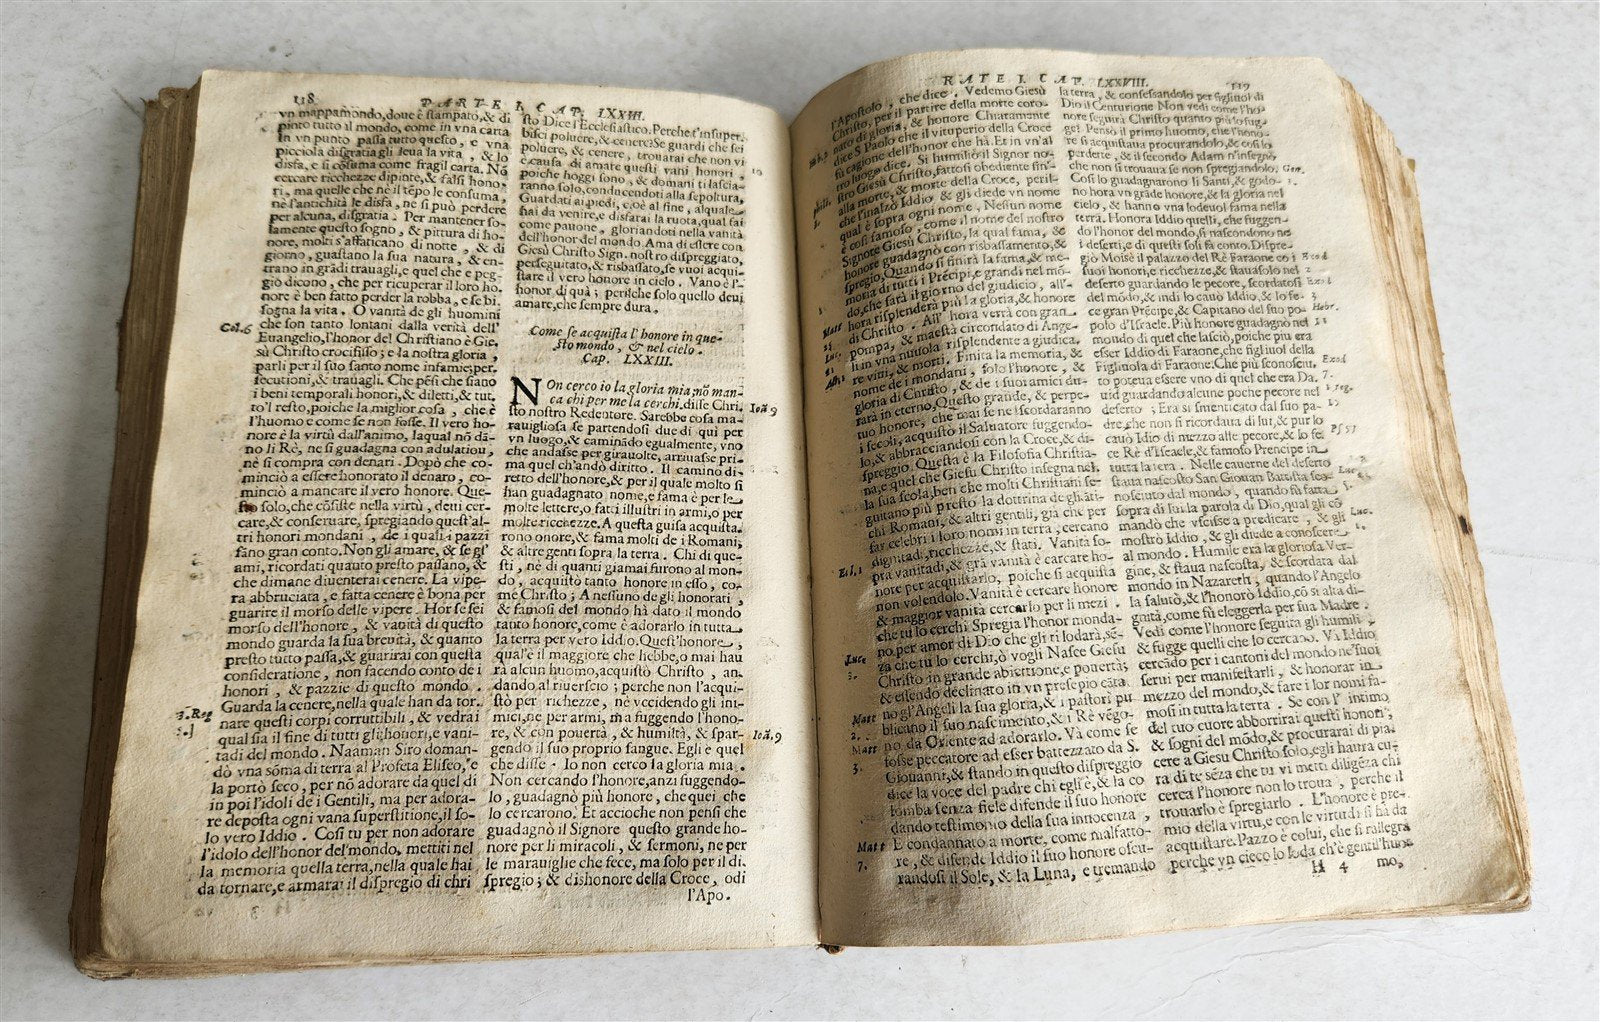 118
PARTE I. CAP. LXXIII.
vn mappamondo, doue è stampato, & di
pinto tutto il mondo, come in vna carta
In vn punto passa tutto questo, e vna
picciola disgratia gli leua la vita, & lo
disfa, e si cõsuma come fragil carta. Nõ
cercare ricchezze dipinte, & falsi hono-
ri, ma quelle che nè il tẽpo le consuma,
nè l'antichità le disfa, ne si può perdere
per alcuna, disgratia. Per mantener so-
lamente questo sogno, & pittura di ho-
nore, molti s'affaticano di notte, & di
giorno, guastano la sua natura, & en-
trano in grãdi trauagli, e quel che e peg-
giò dicono, che per ricuperar il loro ho-
nore è ben fatto perder la robba, e se bi-
sogna la vita. O vanità de gli huomini
che son tanto lontani dalla verità dell'
Col. 6
Euangelio, l'honor del Christiano è Gie-
sù Christo crocifisso; e la nostra gloria,
parli per il suo santo nome infamie; per
secutioni, & trauagli. Che pẽsi che siano
i beni temporali honori, & diletti, & tut.
to'l resto, poiche la miglior cosa, che è
l'huomo e come se non fosse. Il vero ho-
nore è la virtù dall'animo, laqual nõ dã-
no li Rè, ne si guadagna con adulatiou,
nè si compra con denari. Dopò che co-
minciò a essere honorato il denaro, co-
minciò a mancare il vero honore. Que-
sto solo, che cõsiste nella virtù, deui cer-
care, & conseruare, spregiando quest'al-
tri honori mondani, de i quali i pazzi
fãno gran conto. Non gli amare, & se gl'
ami, ricordati quauto presto passano, &
che dimane diuenterai cenere. La vipe-
ra abbruciata, e fatta cenere è bona per
guarire il morso delle vipere. Hor se sei
morso dell'honore, & vanità di questo
mondo guarda la sua breuità, & quanto
presto tutto passa, & guarirai con questa
consideratione, non facendo conto de i
honori, & pazzie di questo mondo.
Guarda la cenere, nella quale han da tor.
3. Reg
nare questi corpi corruttibili, & vedrai
qual sia il fine di tutti gli honori, e vani-
tadi del mondo. Naaman Siro doman-
dò vna sõma di terra al Profeta Eliseo, e
la portò seco, per nõ adorare da quel di
in poi l'idoli de i Gentili, ma per adora-
re deposta ogni vana superstitione, il so-
lo vero Iddio. Così tu per non adorare
l'idolo dell'honor del mondo, mettiti nel
la memoria quella terra, nella quale hai
da tornare, e armarai il dispregio di chri
sto Dice l'Ecclesiastico. Perche t'insuper.
bisci poluere, & cenere? Se guardi che sei
poluere, & cenere, trouarai che non vi
è causa di amare questi vani honori,
10
poiche hoggi sono, & domani ti lascia-
ranno solo, conducendoti alla sepoltura,
Guardati ai piedi, cioè al fine, alquale
hai da venire, e disfarai la ruota, qual fai
come pauone, gloriandoti nella vanità
dell'honor del mondo. Ama di essere con
Giesù Christo Sign. nostro dispreggiato,
perseguitato, & risbassato, se vuoi acqui-
stare il vero honore in cielo. Vano è l'-
honor di quà; perilche solo quello deui
amare, che sempre dura.
Come se acquista l'honore in que-
sto mondo, & nel cielo.
Cap. LXXIII.
NOn cerco io la gloria mia; nõ man-
ca chi per me la cerchi. disse Chri.
Ioã 9
sto nostro Redentore. Sarebbe cosa ma-
rauigliosa se partendosi due di qui per
vn luogo, & caminãdo egualmente, vno
che andasse per girauolte, arriuasse pri-
ma quel ch'andò diritto. Il camino di-
retto dell'honore, & per il quale molto si
han guadagnato nome, e fama è per le
molte lettere, o fatti illustri in armi, o per
molte ricchezze. A questa guisa acquista.
rono onore, & fama molti de i Romani,
& altre genti sopra la terra. Chi di que-
sti, nè di quanti giamai furono al mon-
do, acquistò tanto honore in esso, co-
me Christo; A nessuno de gli honorati,
& famosi del mondo hà dato il mondo
tanto honore, come è adorarlo in tutta
la terra per vero Iddio. Quest'honore,
qual'e il maggiore che hebbe, o mai hau
rà alcun huomo, acquistò Christo, an.
dando al riuerscio; perche non l'acqui-
stò per richezze, nè vccidendo gli ini-
mici, ne per armi, ma fuggendo l'hono-
re, & con pouertà, & humiltà, & spar-
Ioã. 9
gendo il suo proprio sangue. Egli e quel
che disse. Io non cerco la gloria mia.
Non cercando l'honore, anzi fuggendo-
lo, guadagnò più honore, che quei che
lo cercarono. Et accioche non pensi che
guadagnò il Signore questo grande ho-
nore per li miracoli, & sermoni, ne per
le marauiglie che fece, ma solo per il di.
spregio; & dishonore della Croce, odi
l'Apo.
RATE I. CAP. LXXVIII.
119
l'Apostolo, che dice. Vedemo Giesù
Christo, per il partire della morte coro-
nato di gloria, & honore Chiaramente
dice S. Paolo che il vituperio della Croce
fù cagione dell'honor che hà. Et in vn'al
tro luogo dice. Si humiliò il Signor no-
stro Giesù Christo, fattosi obediente fin'-
alla morte, & morte della Croce, peril-
che l'inalzò Iddio & gli diede vn nome
qual è sopra ogni nome. Nessun nome
è così famoso, come il nome del nostro
Signore Giesù Christo, la qual fama, &
honore guadagnò con risbassamento, &
spregio. Quando si finirà la fama, & me-
moria di tutti i Prẽcipi, e grandi nel mõ-
do, che farà il giorno del giudicio, all'-
Matt
hora risplenderà più la gloria, & honore
di Christo. All'hora verrà con gran
Luc.
pompa, & maestà circondato di Ange-
li in vna nuuola risplendente a giudica.
re viui, & morti. Finita la memoria, &
nome de i mondani, solo l'honore, &
gloria di Christo, & de i suoi amici du-
rarà in eterno, Questo grande, & perpe-
tuo honore, che mai se ne scordaranno
i secoli, acquisto il Saluatore fuggendo-
lo, & abbracciandosi con la Croce, & di-
spreggio. Questa è la Filosofia Christia-
na, e quel che Giesu Christo insegna nel.
la sua scola, ben che molti Christiani se-
guitano più presto la dottrina de gli ãti-
chi Romani, & altri gentili, già che per
far celebri i loro nomi in terra, cercano
dignitadi, ricchezze, & stati. Vanità so-
pra vanitadi, & grã vanità è carcare ho-
nore per acquistarlo, poiche si acquista
non volendolo. Vanità è cercare honore
& maggior vanità cercarlo per li mezi.
che tu lo cerchi Spregia l'honor monda-
no, per amor di Dio che gli ti lodarà, sẽ-
Luce
3.
za che tu lo cerchi, ò vogli Nasce Giesu
Christo in grande abiettione, e pouertà;
& essendo declinato in vn presepio cãta.
Matt
2.
no gl'Angeli la sua gloria, & i pastori pu
blicano il suo nascimento, & i Rè vẽgo-
Matt
3.
no da Oriente ad adorarlo. Và come se
fosse peccatore ad esser battezzato da S.
Giouanni, & stando in questo dispreggio
dice la voce del padre chi egl'è, & la co
lomba senza fiele difende il suo honore
dando testimonio della sua innocenza,
Matt
7.
E condannato a morte, come malfatto-
re, & difende Iddio il suo honore oscu-
randosi il Sole, & la Luna, e tremando
la terra, & confessandolo per figliuol di
Dio il Centurione Non vedi come l'ho-
nore seguirà Christo quanto più lo fug-
ge? Pensò il primo huomo, che l'hono-
re si acquistaua procurandolo, & così lo
perdette, & il secondo Adam n'insegnò
che non si trouaua se non spregiandolo.
Gen.
Così lo guadagnarono li Santi, & godo-
no hora vn grãde honore, & la gloria nel
cielo, & hanno vna lodeuol fama nella
terra. Honora Iddio quelli, che fuggen-
do l'honor del mondo, si nascondono ne
i deserti, e di questi soli fa conto. Dispre-
giò Moisè il palazzo del Rè Faraone co i
Exod
suoi honori, e ricchezze, & stauasolo nel
2
deserto guardando le pecore, scordatosi
Exod
del mõdo, & indi lo cauò Iddio, & lo fe-
3.
ce gran Prẽcipe, & Capitano del suo po-
Hebr.
polo d'Israele. Più honore guadagnò nel
11
mondo di quel che lasciò, poiche più era
esser Iddio di Faraone, che figliuol della
Exod
Figliuola di Faraone. Che più sconosciu.
7.
to poteua essere vno di quel che era Da.
uid guardando alcune poche pecore nel
1. Reg.
deserto; Era sì smenticato dal suo pa-
dre, che non si ricordaua di lui, & pur lo
cauò Idio di mezzo alle pecore, & lo fe.
ce Rè d'Israele, & famoso Prencipe in
tutta la terra. Nelle cauerne del deserto
staua nascosto San Giouan Battista sco-
nosciuto dal mondo, quando fù fatta
sopra di lui la parola di Dio, qual gli cõ
mandò che vscisse a predicare, & gli
mostrò Iddio, & gli diede a conoscere
al mondo. Humile era la gloriosa Ver-
gine, & staua nascosta, & scordata dal
mondo in Nazareth, quando l'Angelo
la salutò, & l'honorò Iddio, cõ sì alta di-
gnità, come fù eleggerla per sua Madre.
Vedi come l'honore seguita gli humili
& fugge quelli che lo cercano. Và Iddio
cercãdo per i cantoni del mondo ne'suoi
serui per manifestarli, & honorar in
mezzo del mondo, & fare i lor nomi fa-
mosi in tutta la terra. Se con l'intimo
del tuo cuore abborrirai questi honori,
& sogni del mõdo, & procurarai di pia.
cere a Giesu Christo solo, egli haura cu-
ra di te sẽza che tu vi metti diligẽza chi
cerca l'honore non lo troua, perche il
trouarlo è spregiarlo. L'honore è pre-
mio della virtu, e con le virtudi si hà da
acquistare. Pazzo è colui, che si rallegra
perche vn cieco lo loda ch'è gentil'huo
H 4
mo,